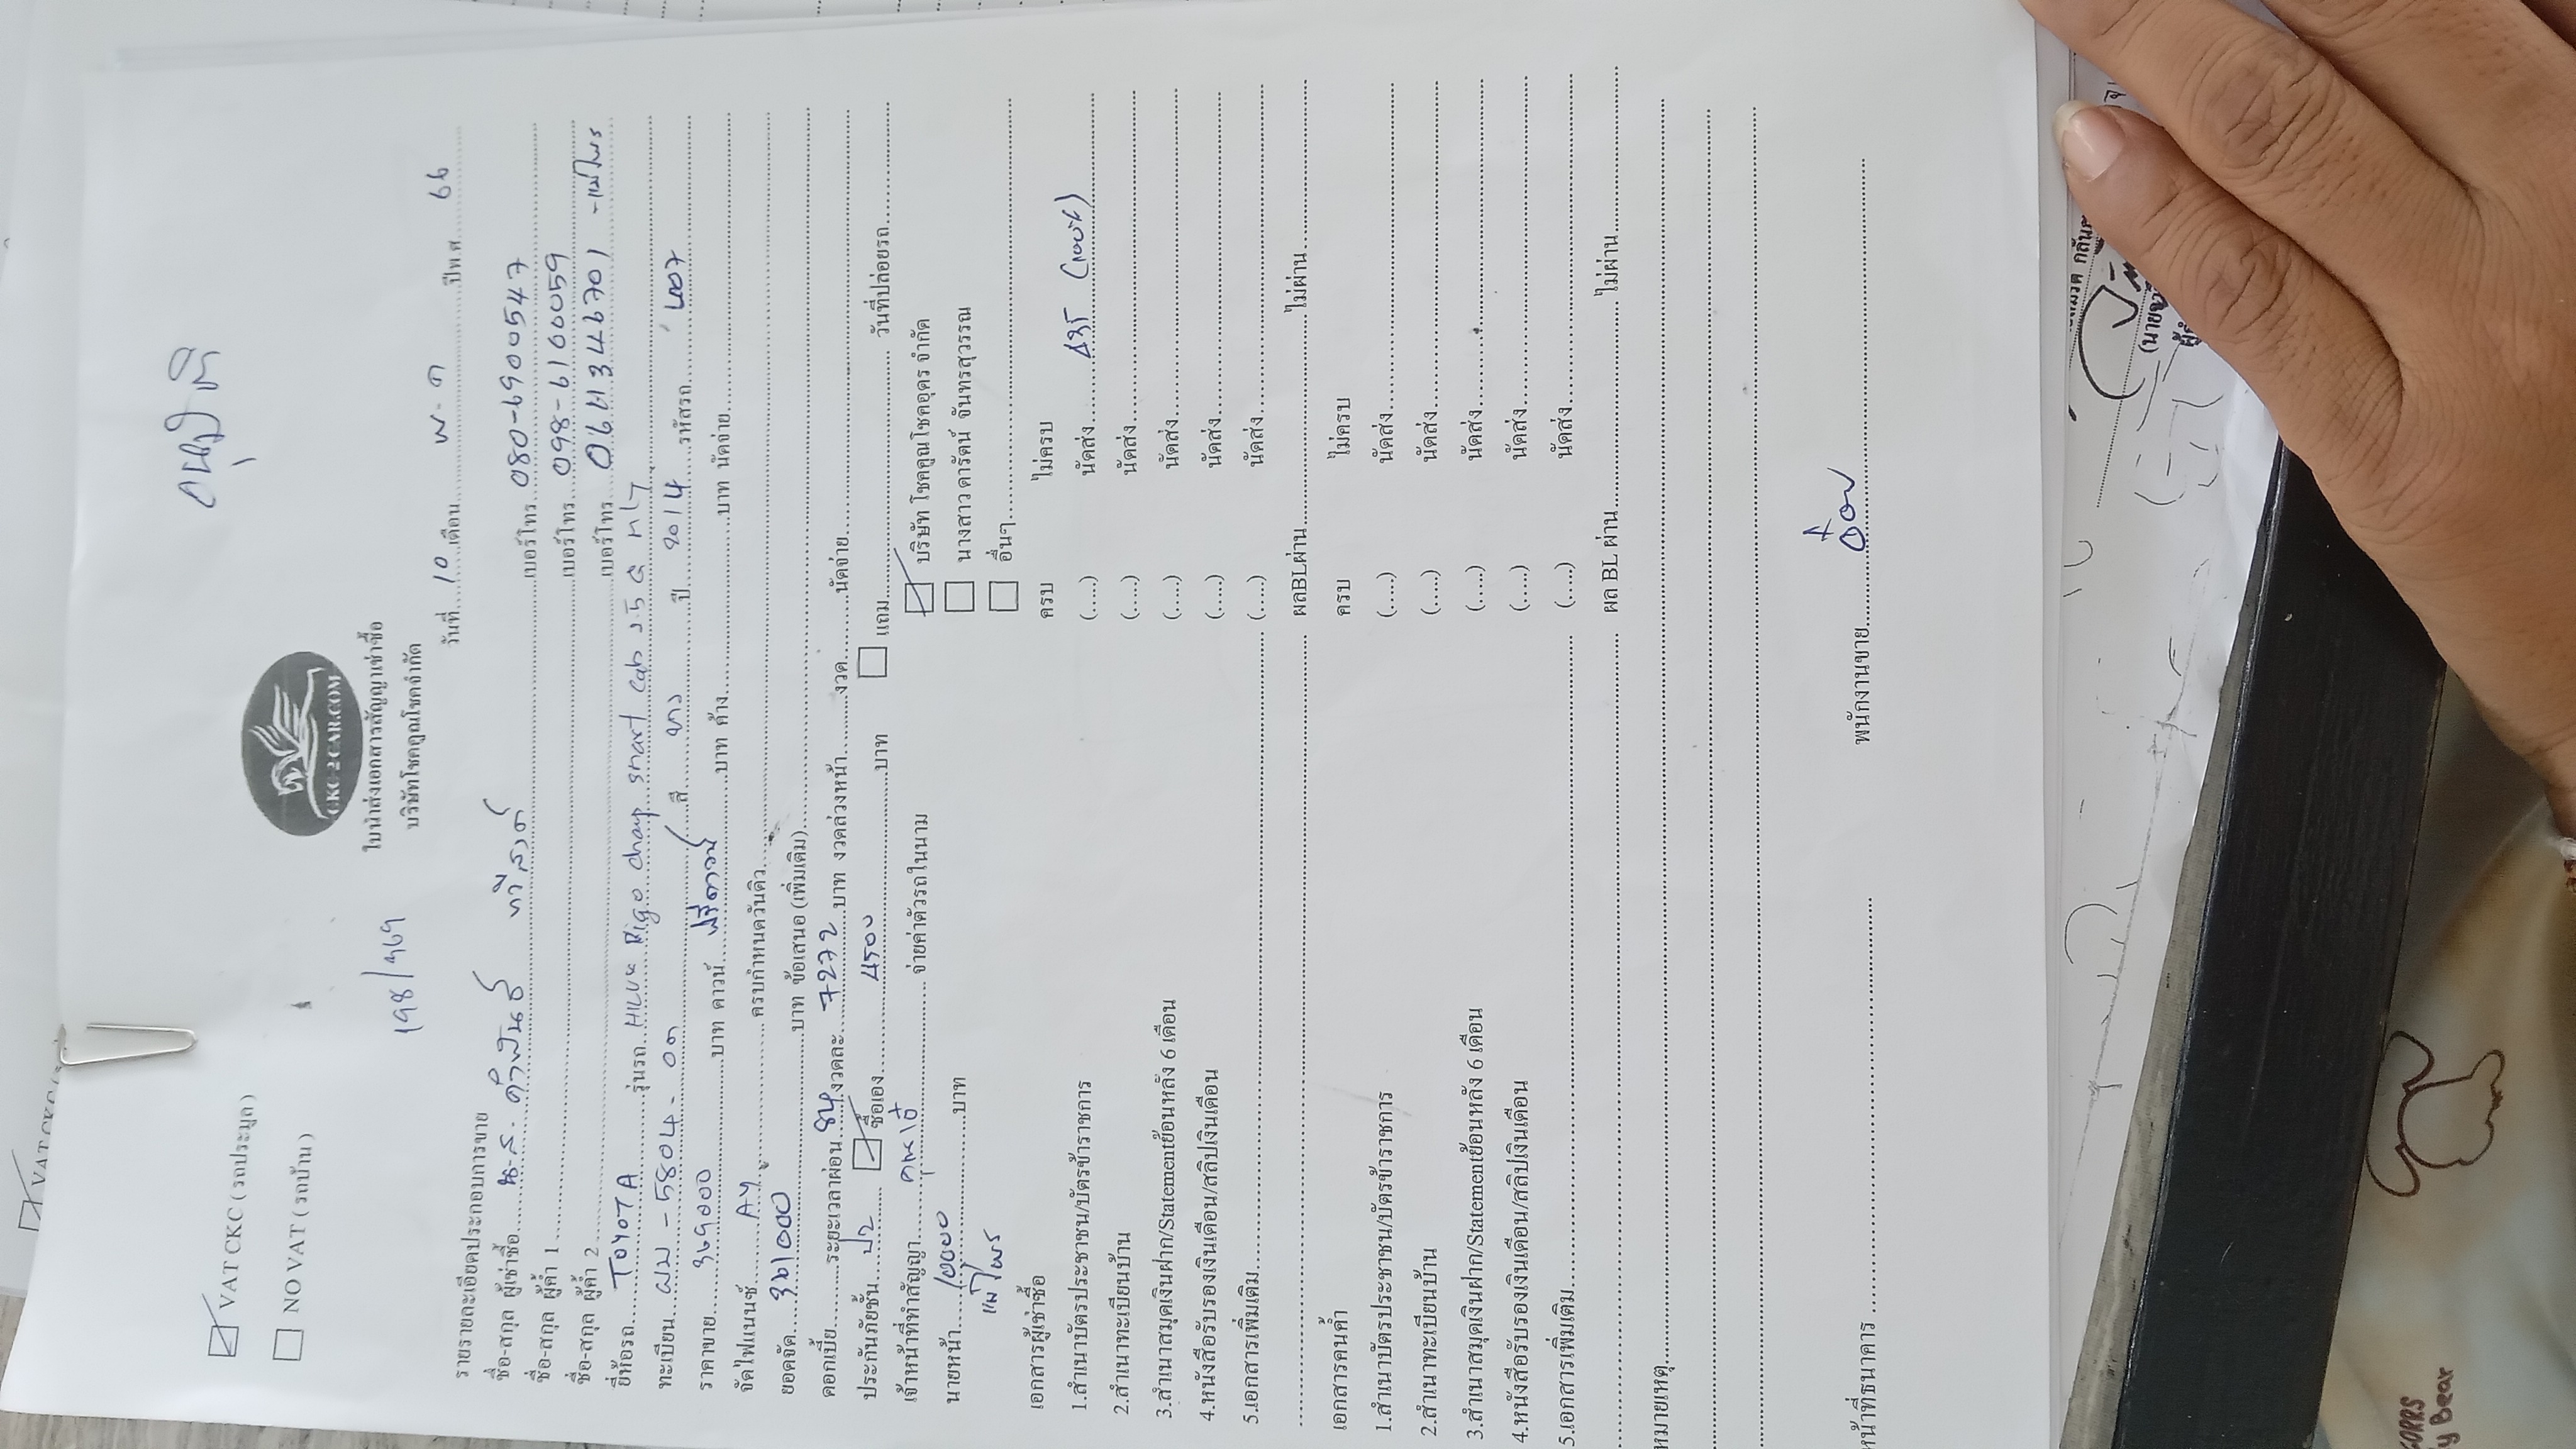 อนุมัติ
☑ VAT CKC ( รถประมูล )
☐ NO VAT ( รถบ้าน )
CKC-2CAR.COM
198/369
ใบนำส่งเอกสารสัญญาเช่าซื้อ
บริษัทโชคคูณโชคจำกัด
วันที่....10....เดือน....พ.ค....ปีพ.ศ....66
รายรายละเอียดประกอบการขาย
ชื่อ-สกุล ผู้เช่าซื้อ....น.ส. คำพันธ์ ทวีสงค์....เบอร์โทร....080-6900547
ชื่อ-สกุล ผู้ค้ำ 1....เบอร์โทร....098-6100059
ชื่อ-สกุล ผู้ค้ำ 2....เบอร์โทร....0611346701 -แม่ไพร
ยี่ห้อรถ....TOYOTA....รุ่นรถ....HILUX Vigo champ smart cab
ทะเบียน....ผม - 5804 - อด....สี....เทา....ปี....2014....รหัสรถ....L007
ราคาขาย....369000....บาท ดาวน์....ฟรีดาวน์....บาท ค้าง....บาท นัดจ่าย....
จัดไฟแนนซ์....AY....ครบกำหนดวันคิว....
ยอดจัด....361000....บาท ข้อเสนอ (เพิ่มเติม)....
ดอกเบี้ย....ระยะเวลาผ่อน....84....งวดละ....7272....บาท งวดล่วงหน้า....งวด....นัดจ่าย....
ประกันภัยชั้น....ป2.... ☑ ซื้อเอง....4500....บาท ☐ แถม.... วันที่ปล่อยรถ....
เจ้าหน้าที่ที่ทำสัญญา....จ่ายค่าตัวรถในนาม ☑ บริษัท โชคคูณโชคอุดร จำกัด
นายหน้า....10000....บาท ☐ นางสาว ดารัตน์ จันทรสุวรรณ
แม่ไพร ☐ อื่นๆ....
เอกสารผู้เช่าซื้อ ครบ ไม่ครบ
1.สำเนาบัตรประชาชน/บัตรข้าราชการ (....) นัดส่ง....
2.สำเนาทะเบียนบ้าน (....) นัดส่ง....
3.สำเนาสมุดเงินฝาก/Statementย้อนหลัง 6 เดือน (....) นัดส่ง....
4.หนังสือรับรองเงินเดือน/สลิปเงินเดือน (....) นัดส่ง....
5.เอกสารเพิ่มเติม.... (....) นัดส่ง....
.... ผลBLผ่าน....ไม่ผ่าน....
เอกสารคนค้ำ ครบ ไม่ครบ
1.สำเนาบัตรประชาชน/บัตรข้าราชการ (....) นัดส่ง....
2.สำเนาทะเบียนบ้าน (....) นัดส่ง....
3.สำเนาสมุดเงินฝาก/Statementย้อนหลัง 6 เดือน (....) นัดส่ง....
4.หนังสือรับรองเงินเดือน/สลิปเงินเดือน (....) นัดส่ง....
5.เอกสารเพิ่มเติม.... (....) นัดส่ง....
.... ผล BL ผ่าน....ไม่ผ่าน....
หมายเหตุ....
หน้าที่ธนาคาร.... พนักงานขาย....
y Bear